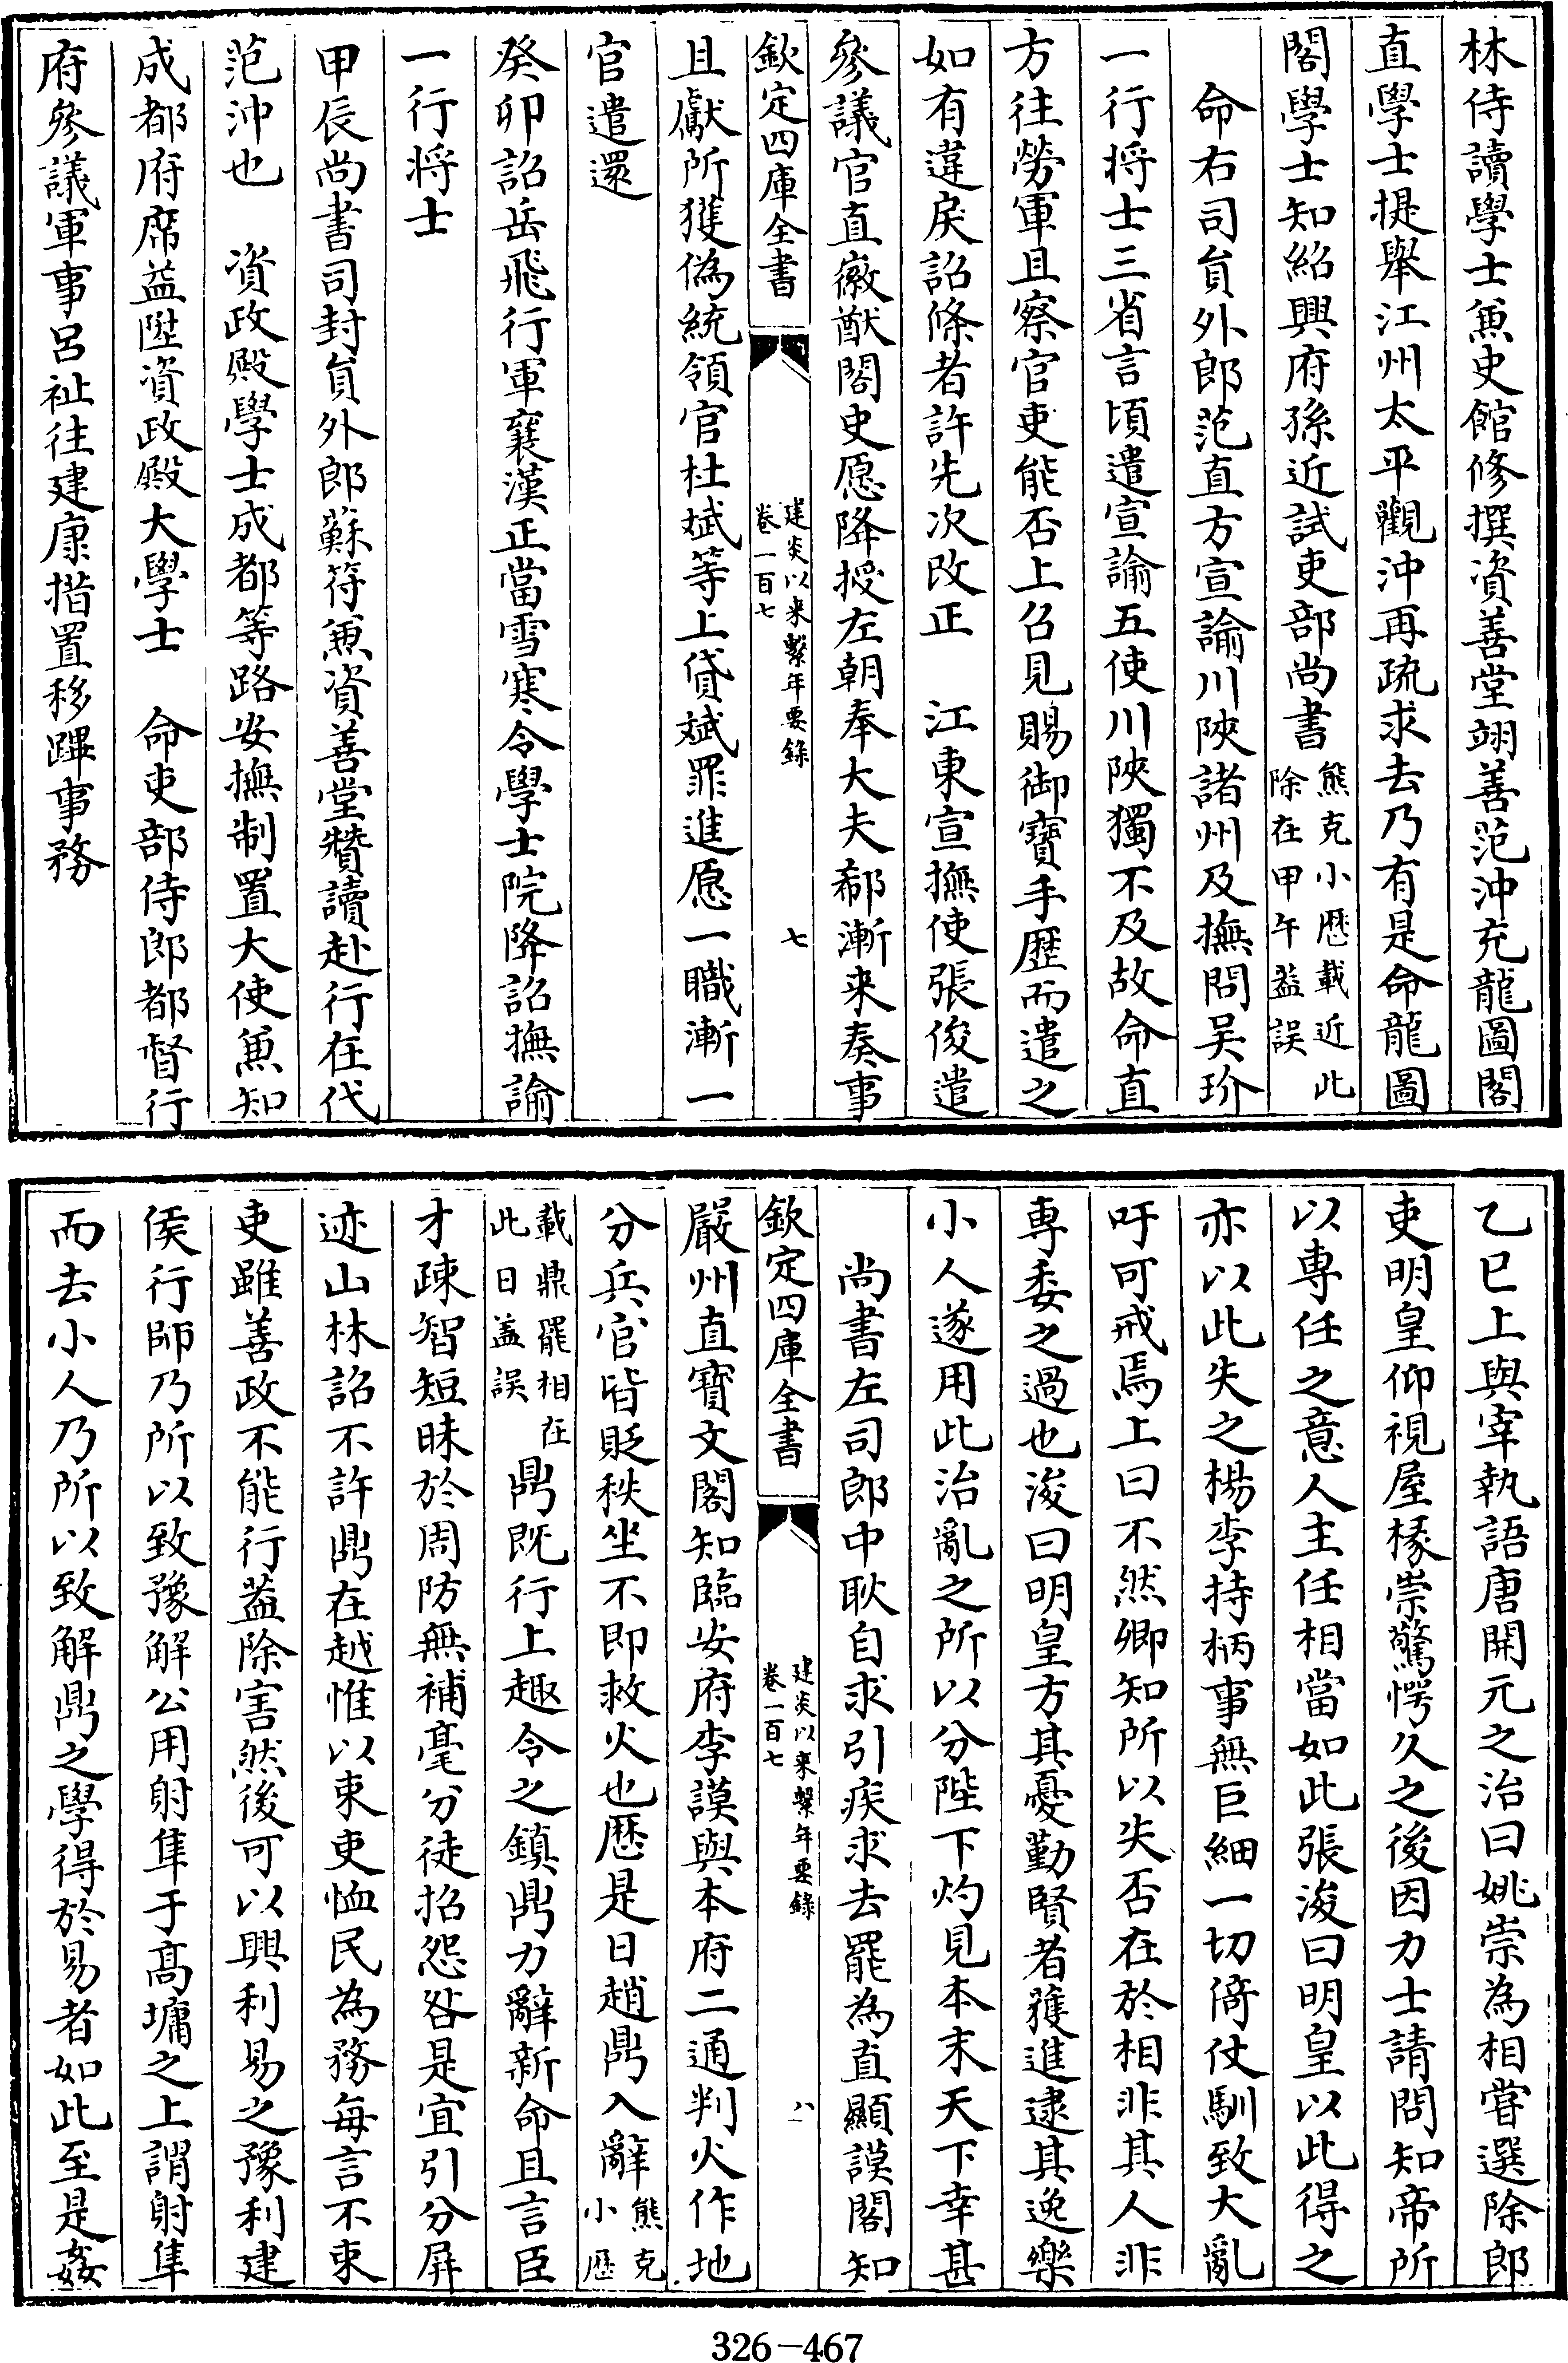 林侍讀學士兼史館修撰資善堂翊善范沖充龍圖閣
直學士提舉江州太平觀沖再疏求去乃有是命龍圖
閣學士知紹興府孫近試吏部尚書熊克小歴載近此除在甲午葢誤
命右司員外郎范直方宣諭川陝諸州及撫問吳玠
一行将士三省言頃遣宣諭五使川陝獨不及故命直
方往勞軍且察官吏能否上召見賜御寶手歴而遣之
如有違戾詔條者許先次改正　江東宣撫使張俊遣
參議官直徽猷閣史愿降授左朝奉大夫郗漸来奏事
欽定四庫全書
建炎以来繫年要錄
卷一百七
七
且獻所獲偽統領官杜斌等上貸斌罪進愿一職漸一
官遣還
癸卯詔岳飛行軍襄漢正當雪寒令學士院降詔撫諭
一行将士
甲辰尚書司封員外郎蘇符兼資善堂贊讀赴行在代
范沖也　資政殿學士成都等路安撫制置大使兼知
成都府席益陞資政殿大學士　命吏部侍郎都督行
府參議軍事呂祉往建康措置移蹕事務
乙巳上與宰執語唐開元之治曰姚崇為相嘗選除郎
吏明皇仰視屋椽崇驚愕久之後因力士請問知帝所
以專任之意人主任相當如此張浚曰明皇以此得之
亦以此失之楊李持柄事無巨細一切倚仗馴致大亂
吁可戒焉上曰不然卿知所以失否在於相非其人非
專委之過也浚曰明皇方其憂勤賢者獲進逮其逸樂
小人遂用此治亂之所以分陛下灼見本末天下幸甚
尚書左司郎中耿自求引疾求去罷為直顯謨閣知
欽定四庫全書
建炎以来繫年要錄
卷一百七
八
嚴州直寶文閣知臨安府李謨與本府二通判火作地
分兵官皆貶秩坐不即救火也歴是日趙鼎入辭熊克小歴
載鼎罷相在此日葢誤鼎既行上趣令之鎮鼎力辭新命且言臣
才疎智短昧於周防無補毫分徒招怨咎是宜引分屏
迹山林詔不許鼎在越惟以束吏恤民為務每言不束
吏雖善政不能行葢除害然後可以興利易之豫利建
侯行師乃所以致豫解公用射隼于高墉之上謂射隼
而去小人乃所以致解鼎之學得於易者如此至是姦
326-467